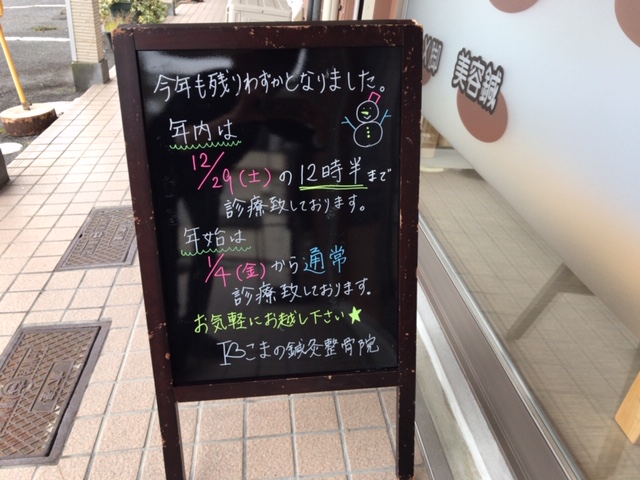 今年も残りわずかとなりました。
年内は
12/29(土)の12時半まで
診療致しております。
年始は
1/4(金)から通常
診療致しております。
お気軽にお越し下さい★
こまの鍼灸整骨院
美容鍼